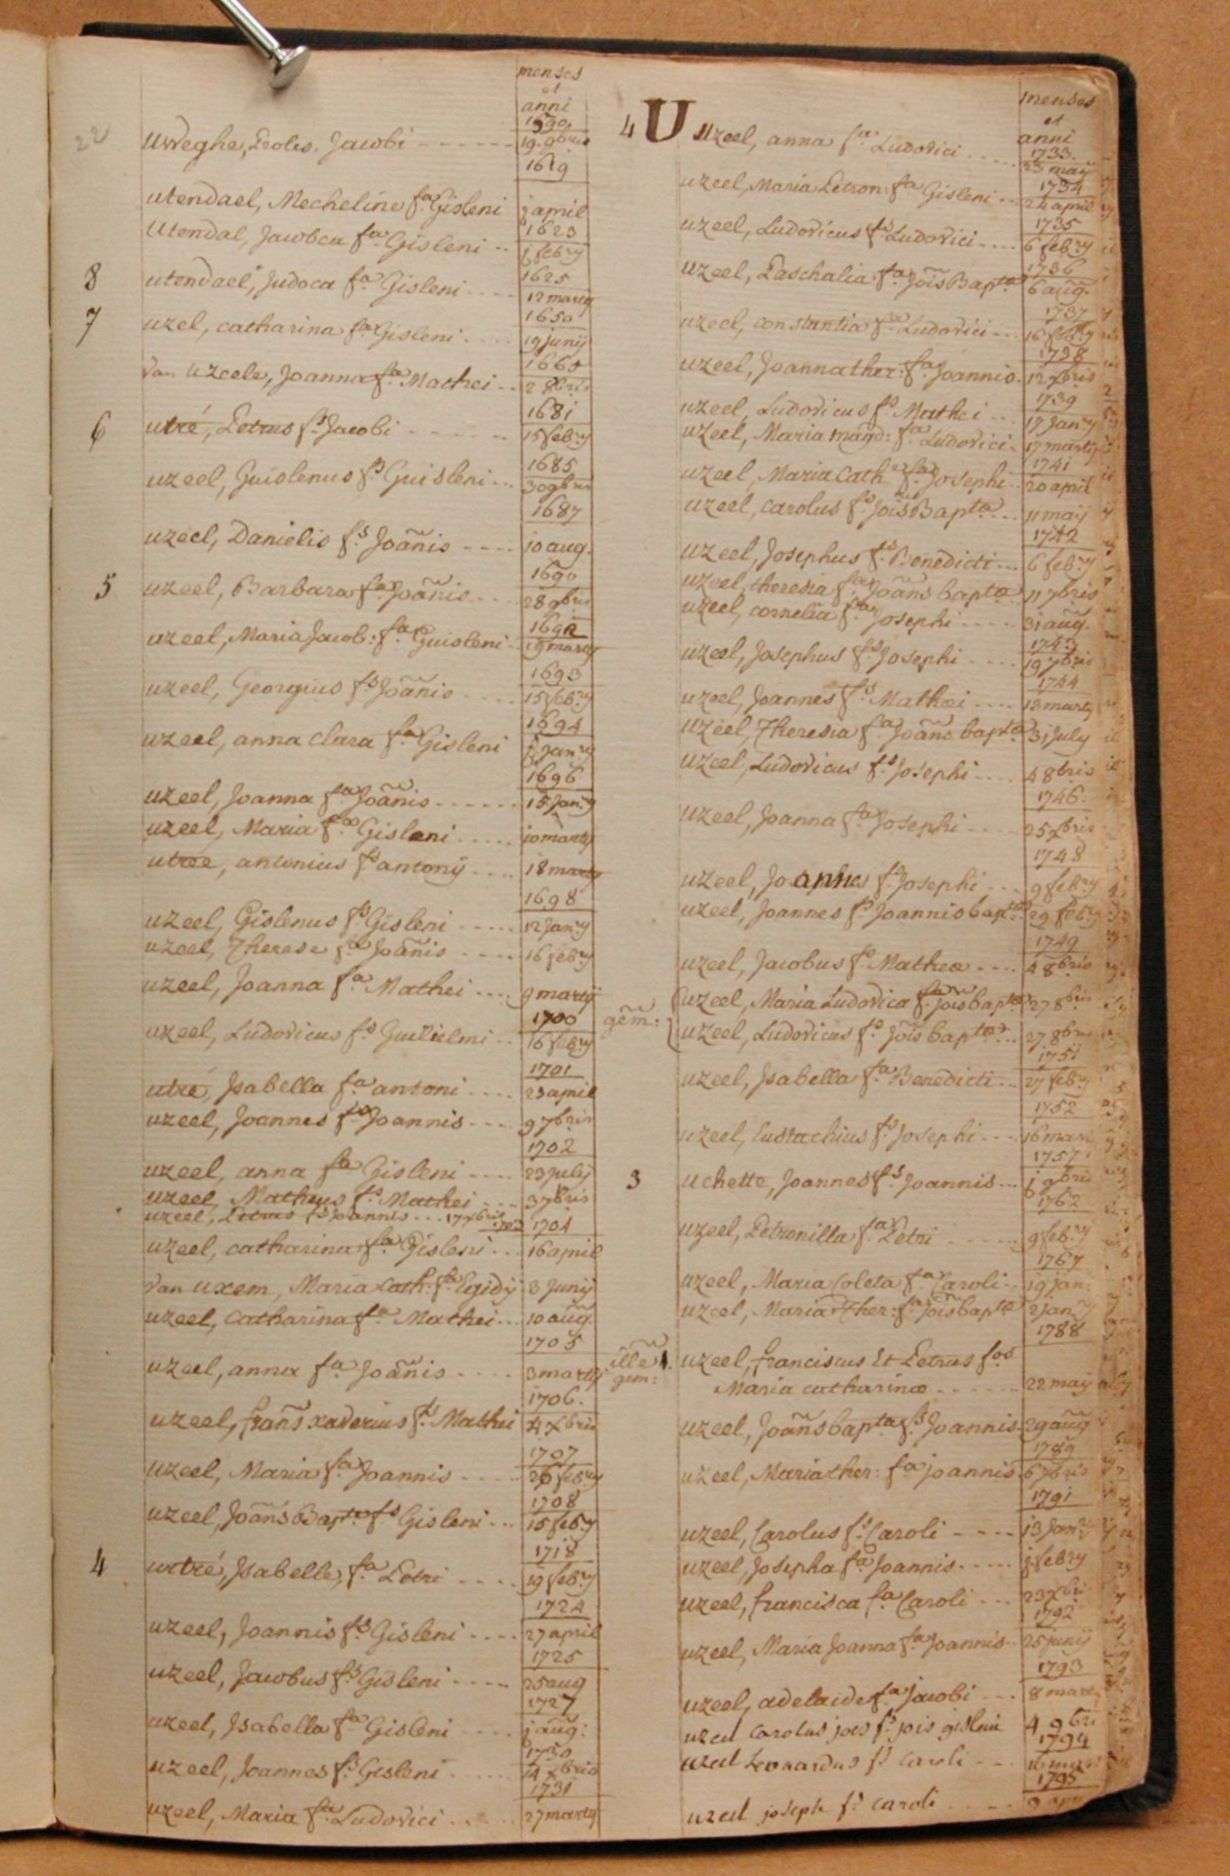 menses
et
anni
1590
22 Uvreghe, Jacobi ------ 19. 9bris
1619
utendael, Mecheline fa Gisleni j april
1623
Utendal, Jacobca fa Gisleni -- j febry
1625
8 utendael, Judoca fa Gisleni ---- 12 marty
1650
7 uzel, catharina fa Gisleni ---- 19 junij
1660
van uzeele, Joanna fa Mathei -- 2 8bris
1681
6 utré, Petrus fs Jacobi ------ 15 febry
1685
uzeel, Guislenus fs Guisleni --- 30 9bris
1687
uzeel, Danielis fs Joañis ---- 10 aug.
1690
5 uzeel, Barbara fa Joañis --- 28 9bris
1692
uzeel, Maria Jacob: fa Guisleni - 19 marty
1693
uzeel, Georgius fs Joañis ---- 15 febry
1694
uzeel, anna clara fa Gisleni j Janry
1696
uzeel, Joanna fa Joañis ------ 15 Janry
uzeel, Maria fa Gisleni ----- 10 marty
utree, antonius fs antonij ---- 18 marty
1698
uzeel, Gislenus fs Gisleni ----- 12 Janry
uzeel, Therese fa Joañis ----- 16 febry
uzeel, Joanna fa Mathei ---- 9 martij
1700
uzeel, Ludovicus fs Guilielmi -- 16 febry
1701
utré, Isabella fa antoni ---- 23 april
uzeel, Joannes fs Joannis --- 9 7bris
1702
uzeel, anna fa Gisleni ---- 23 julij
uzeel, Matheus fs Mathei --- 3 7bris
uzeel, Petrus fs Joannis --- 17 xbris 1702
1704
uzeel, catharina fa Gisleni --- 16 april
van uxem, Maria Cath: fa Egidij 3 Junij
uzeel, catharina fa Mathei --- 10 aug.
1705
uzeel, anna fa Joañis ----- 3 marty
1706.
uzeel, frañs xaverius fs Mathei 4 xbris
1707
uzeel, Maria fa Joannis ----- 26 febry
1708
uzeel, Joañs Bapta fs Gisleni --- 15 febry
1718
4 utré, Isabelle, fa Petri ---- 19 febry
1724
uzeel, Joannis fs Gisleni ---- 27 april
1725
uzeel, Jacobus fs Gisleni ---- 25 aug
1727
uzeel, Isabella fa Gisleni ---- j aug:
1730
uzeel, Joannes fs Gisleni ----- 14 xbris
1731
uzeel, Maria fa Ludovici ----- 27 marty
menses
et
anni
1733
4 U uzeel, anna fa Ludovici ---- may
1734
uzeel, Maria Petron: fa Gisleni -- 24 april
1735
uzeel, Ludovicus fs Ludovici ---- 6 febry
1736
uzeel, Paschalia fa Jois Bapta 6 aug.
1737
uzeel, constantia fa Ludovici --- 16 febry
1738
uzeel, Joanna ther: fa Joannis - 12 xbris
1739
uzeel, Ludovicus fs Mathei -- 17 Janry
uzeel, Maria magd: fa Ludovici - 17 martij
1741
uzeel, Maria Cath fa Josephi - 20 april
uzeel, carolus fs Jois Bapta --- 11 maij
1742
uzeel, Josephus fs Benedicti --- 6 febry
uzeel, theresia fa Joañs bapta 11 7bris
uzeel, cornelia fa Josephi ----- 31 aug.
1743
uzeel, Josephus fs Josephi ---- 19 7bris
1744
uzeel, Joannes fs Mathei ---- 13 marty
uzeel, Theresia fa Joañs bapta 31 july
uzeel, Ludovicus fs Josephi ---- 4 8bris
1746.
uzeel, Joanna fa Josephi ---- 25 xbris
1748
uzeel, Joannes fs Josephi ---- 9 febry
uzeel, Joannes fs Joannis bapta 29 febry
1749
uzeel, Jacobus fs Mathea ---- 4 8bris
gem: uzeel, Maria Ludovica fa Jois bapta 27 8bris
uzeel, Ludovicus fs Jois bapta --- 27 8bris
1751
uzeel, Isabella fa Benedicti --- 27 febry
1752
uzeel, Eustachius fs Josephi --- 16 mar
1757
3 uchette, Joannes fs Joannis --- j 9bris
1762
uzeel, Petronilla fa Petri ----- 9 febry
1767
uzeel, Maria Coleta fa Caroli -- 19 jan:
uzeel, Maria Ther: fa Jois bapta 2 Janry
1788
ille gem: uzeel, franciscus et Petrus fos
Maria catharinæ ------ 22 maij
uzeel, Joañs bapta fs Joannis - 29 aug
1789
uzeel, Maria ther: fa joannis 6 7bris
1791
uzeel, Carolus fs Caroli ---- 13 Janry
uzeel, Josepha fa Joannis ----- j febry
uzeel, francisca fa Caroli --- 23 xbri
1792
uzeel, Maria Joanna fa Joannis - 25 junij
1793
uzeel, adelaide fa Jacobi --- 8 marty
uzeel Carolus jois fs jois gisleni 4 9bri
1794
uzeel Leonardus fs caroli --
1795
uzeel joseph fs caroli -----